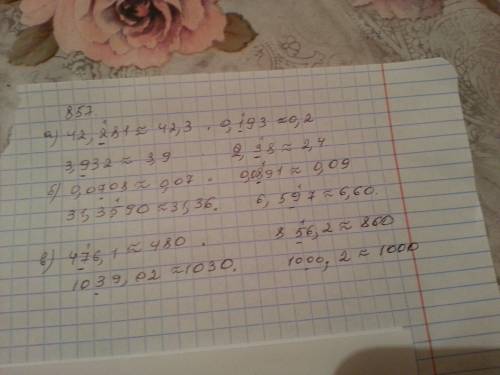 857.
а) 42,281 ≈ 42,3. 0,193 ≈ 0,2
3,932 ≈ 3,9 2,38 ≈ 2,4
б) 0,0703 ≈ 0,07. 0,0891 ≈ 0,09
31,3590 ≈ 31,36. 6,597 ≈ 6,60.
в) 476,1 ≈ 480. 856,2 ≈ 860
1039,02 ≈ 1030. 1000,2 ≈ 1000